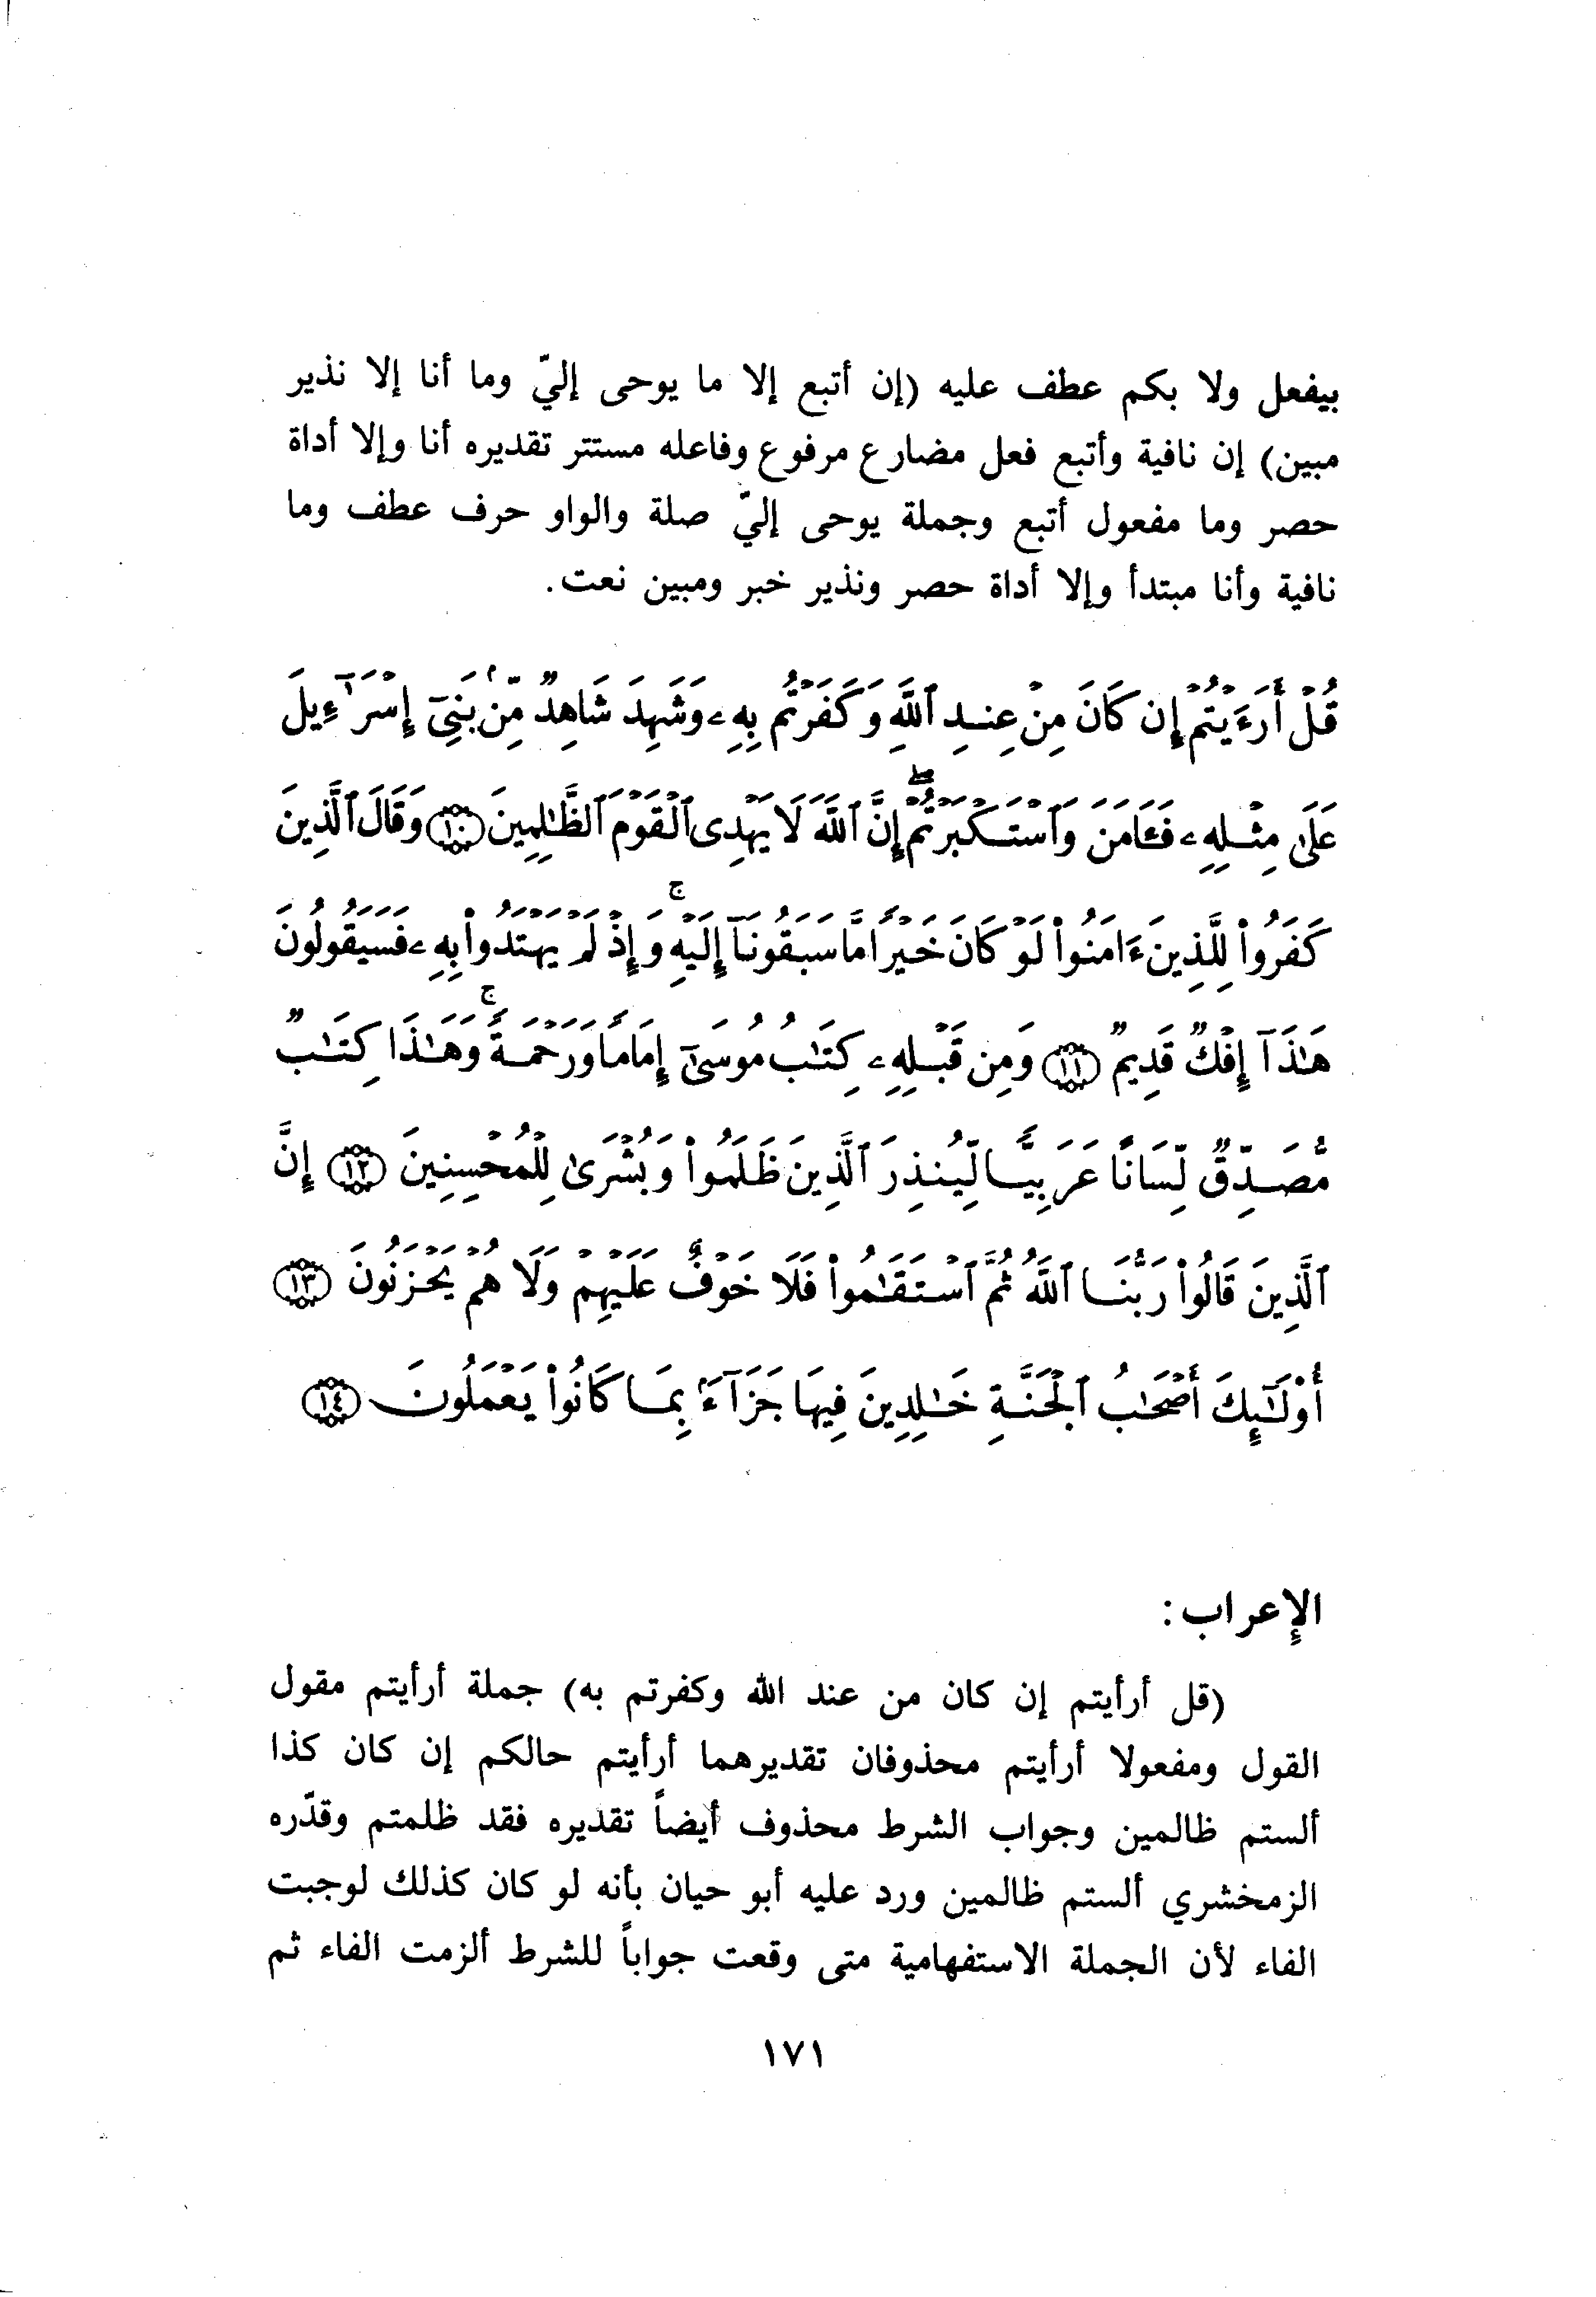 بيفعل ولا بكم عطف عليه (إن أتبع إلا ما يوحى إليّ وما أنا إلا نذير
مبين) إن نافية وأتبع فعل مضارع مرفوع وفاعله مستتر تقديره أنا وإلا أداة
حصر وما مفعول أتبع وجملة يوحى إليّ صلة والواو حرف عطف وما
نافية وأنا مبتدأ وإلا أداة حصر ونذير خبر ومبين نعت.
قُلْ أَرَءَيْتُمْ إِن كَانَ مِنْ عِندِ ٱللَّهِ وَكَفَرْتُم بِهِۦ وَشَهِدَ شَاهِدٌ مِّنۢ بَنِىٓ إِسْرَٰٓءِيلَ
عَلَىٰ مِثْلِهِۦ فَـَٔامَنَ وَٱسْتَكْبَرْتُمْ ۖ إِنَّ ٱللَّهَ لَا يَهْدِى ٱلْقَوْمَ ٱلظَّـٰلِمِينَ ﴿١٠﴾ وَقَالَ ٱلَّذِينَ
كَفَرُوا۟ لِلَّذِينَ ءَامَنُوا۟ لَوْ كَانَ خَيْرًا مَّا سَبَقُونَآ إِلَيْهِ ۚ وَإِذْ لَمْ يَهْتَدُوا۟ بِهِۦ فَسَيَقُولُونَ
هَـٰذَآ إِفْكٌ قَدِيمٌ ﴿١١﴾ وَمِن قَبْلِهِۦ كِتَـٰبُ مُوسَىٰٓ إِمَامًا وَرَحْمَةً ۚ وَهَـٰذَا كِتَـٰبٌ
مُّصَدِّقٌ لِّسَانًا عَرَبِيًّا لِّيُنذِرَ ٱلَّذِينَ ظَلَمُوا۟ وَبُشْرَىٰ لِلْمُحْسِنِينَ ﴿١٢﴾ إِنَّ
ٱلَّذِينَ قَالُوا۟ رَبُّنَا ٱللَّهُ ثُمَّ ٱسْتَقَـٰمُوا۟ فَلَا خَوْفٌ عَلَيْهِمْ وَلَا هُمْ يَحْزَنُونَ ﴿١٣﴾
أُو۟لَـٰٓئِكَ أَصْحَـٰبُ ٱلْجَنَّةِ خَـٰلِدِينَ فِيهَا جَزَآءًۢ بِمَا كَانُوا۟ يَعْمَلُونَ ﴿١٤﴾
الإعراب:
(قل أرأيتم إن كان من عند الله وكفرتم به) جملة أرأيتم مقول
القول ومفعولا أرأيتم محذوفان تقديرهما أرأيتم حالكم إن كان كذا
ألستم ظالمين وجواب الشرط محذوف أيضاً تقديره فقد ظلمتم وقدّره
الزمخشري ألستم ظالمين ورد عليه أبو حيان بأنه لو كان كذلك لوجبت
الفاء لأن الجملة الاستفهامية متى وقعت جواباً للشرط ألزمت الفاء ثم
١٧١